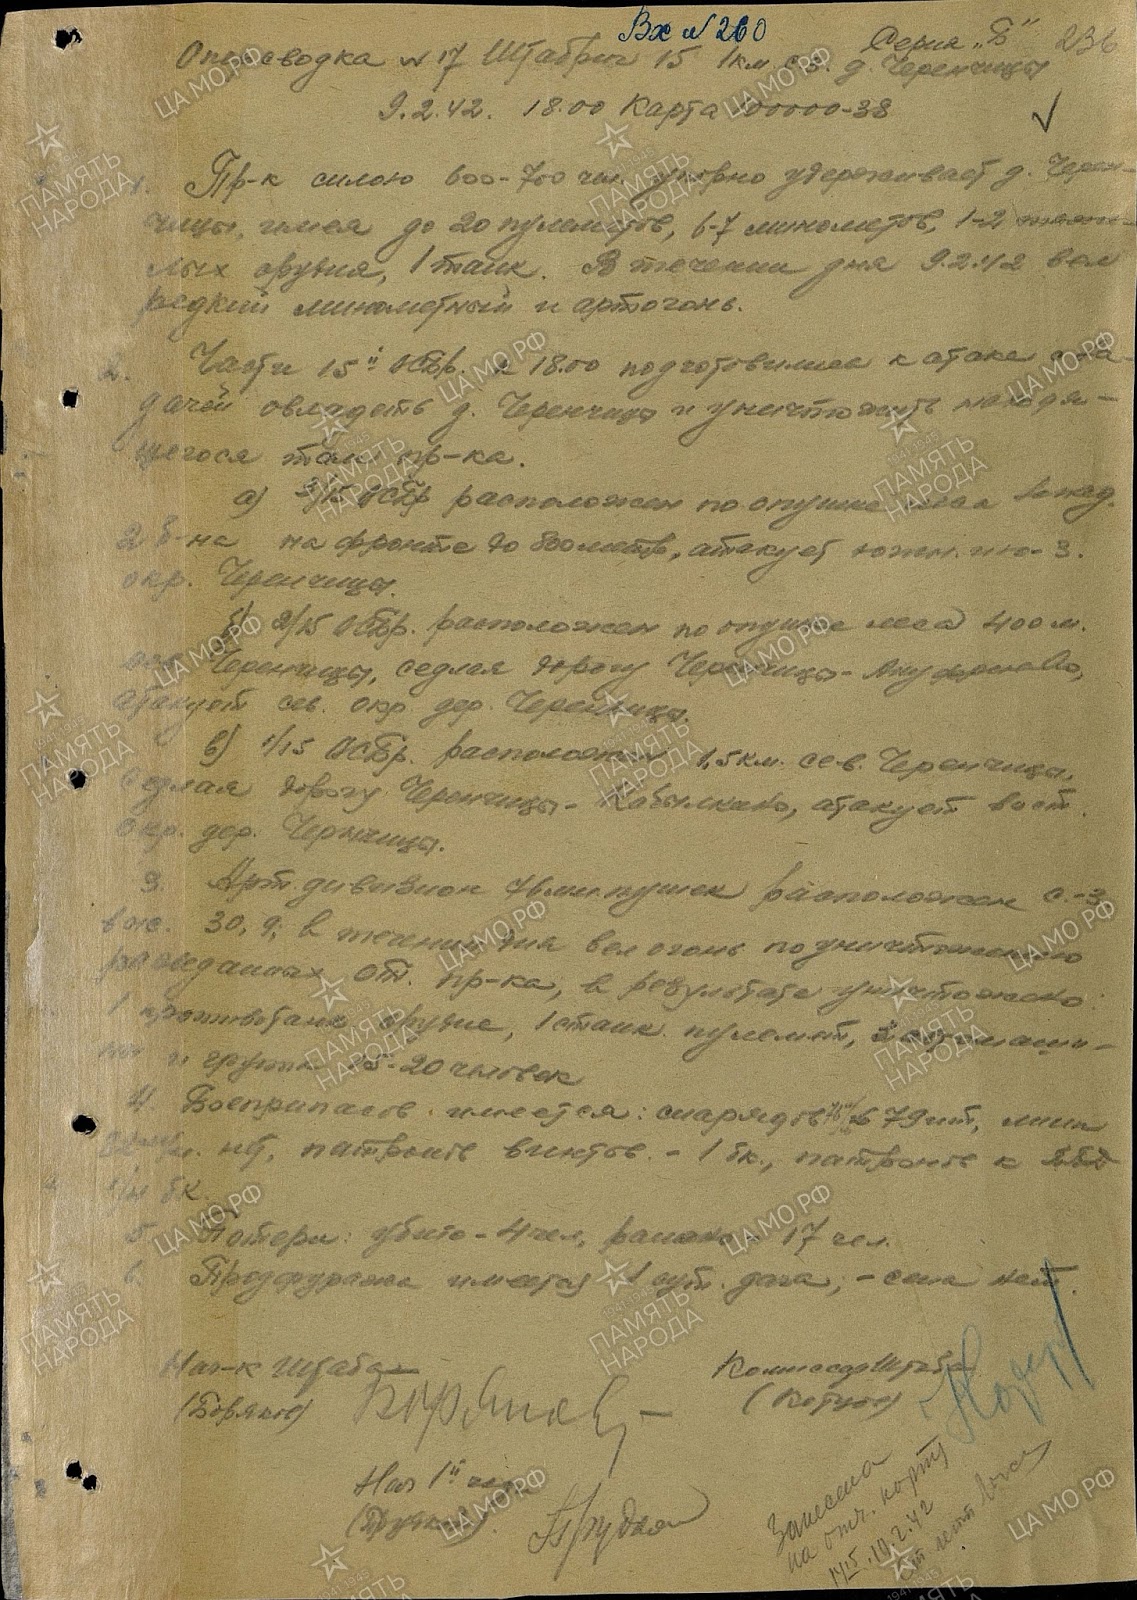 Вх № 260
Серия „Б“ 236
Оперсводка № 17 Штабриг 15 1 км св. д. Черенчицы
9.2.42. 18.00 Карта 100000-38
1. Пр-к силою 600-700 чел. упорно удерживает д. Черен-
чицы, имея до 20 пулеметов, 6-7 минометов, 1-2
орудия, 1 танк. В течении дня 9.2.42 вел
редкий минометный и артогонь.
2. Части 15й ОСбр. к 18.00 подготовились к атаке с за-
дачей овладеть д. Черенчицы и уничтожить находя-
щегося там пр-ка.
а) 3/15 ОСБр расположен по опушке леса запад.
на фронте до 800 метров, атакует южн. и ю-з.
окр. Черенчицы.
б) 2/15 ОСБр. расположен по опушке леса 400 м.
Черенчицы, седлая дорогу Черенчицы-
атакует сев. окр. дер. Черенчицы.
в) 1/15 ОСБр. расположен 1,5 км. сев. Черенчицы,
седлая дорогу Черенчицы - Кобылкино, атакует вост.
окр. дер. Черенчицы.
3. Арт. дивизион 76 мм пушек расположен с.-з.
выс. 30,9; в течении дня вел огонь по уничтожению
от. пр-ка, в результате уничтожено:
1 противотанк. орудие, 1 станк. пулемет, 2 автомаши-
ны и группа 15-20 человек
4. Боеприпасов имеется: снарядов 76 м/м 679 шт, мин
нет, патронов винтов. - 1 бк., патронов к ППД
1/4 бк.
5. Потери: убито - 4 чел, ранено - 17 чел.
6. Продфуража имеется 1 сут. дача, - сена нет.
Нач-к Штаба Комиссар Штаба
(Боряков)
Нач 1й части
Занесена
на отч. карту
10.2.42
ЦАМО.РФ
ПАМЯТЬ
НАРОДА
1941-1945